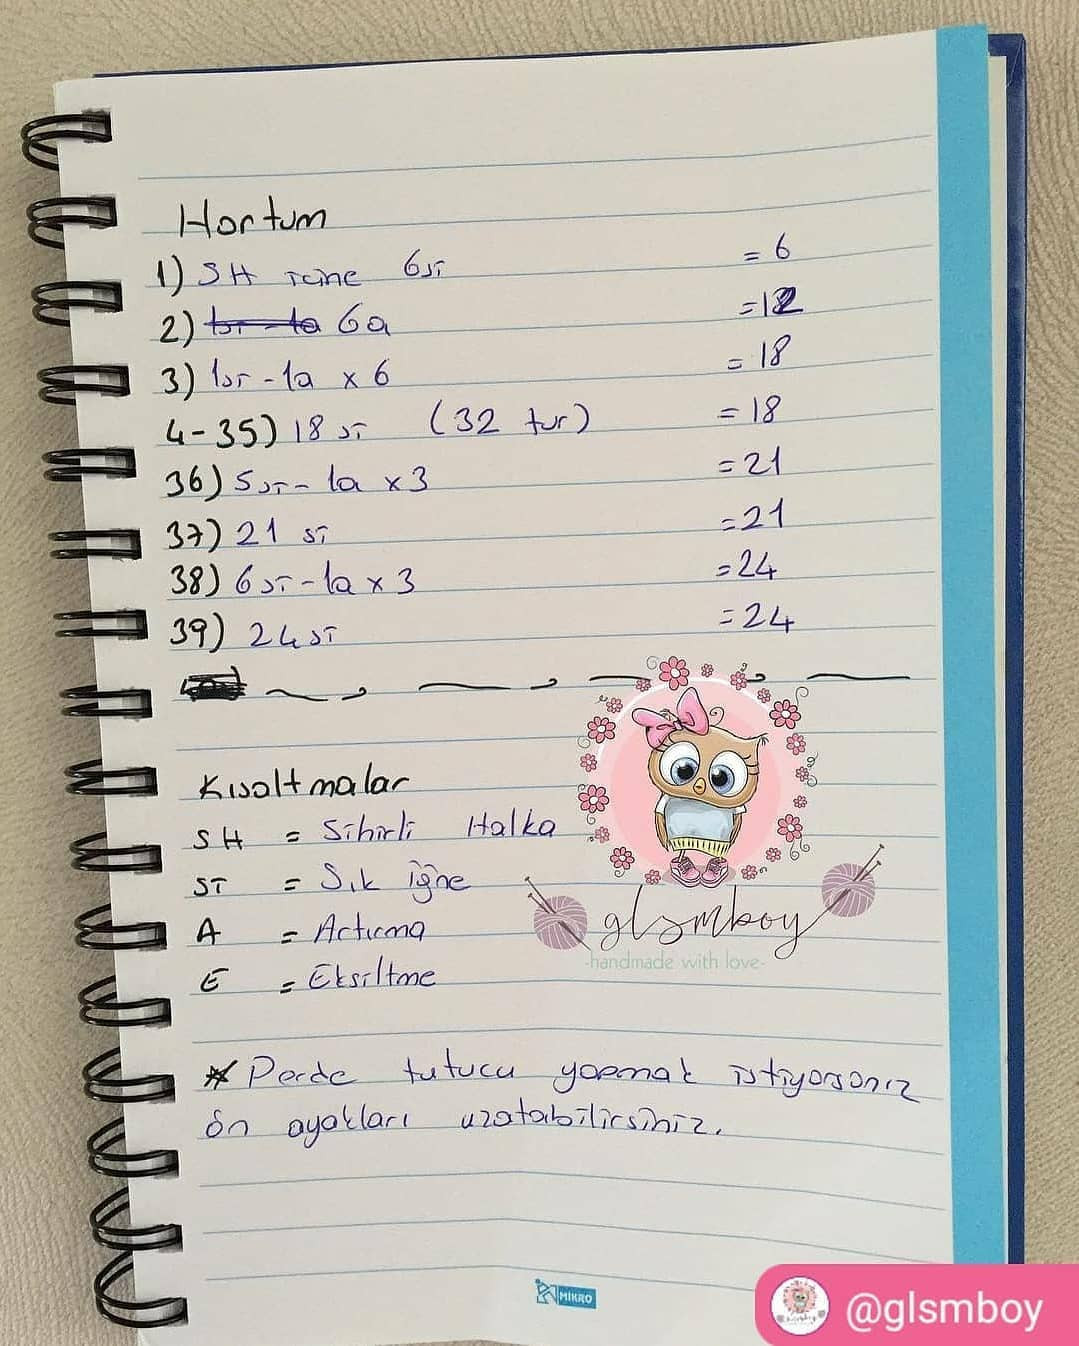 Hortum
1) SH içine 6sı = 6
2) 6a = 12
3) 1sı - 1a x 6 = 18
4-35) 18 sı (32 tur) = 18
36) 5sı - 1a x 3 = 21
37) 21 sı = 21
38) 6 sı - 1a x 3 = 24
39) 24 sı = 24
Kısaltmalar
SH = Sihirli Halka
Sİ = Sık iğne
A = Artırma
E = Eksiltme
* Perde tutucu yapmak istiyorsanız
ön ayakları uzatabilirsiniz.
glsmboy
-handmade with love-
MIKRO
@glsmboy